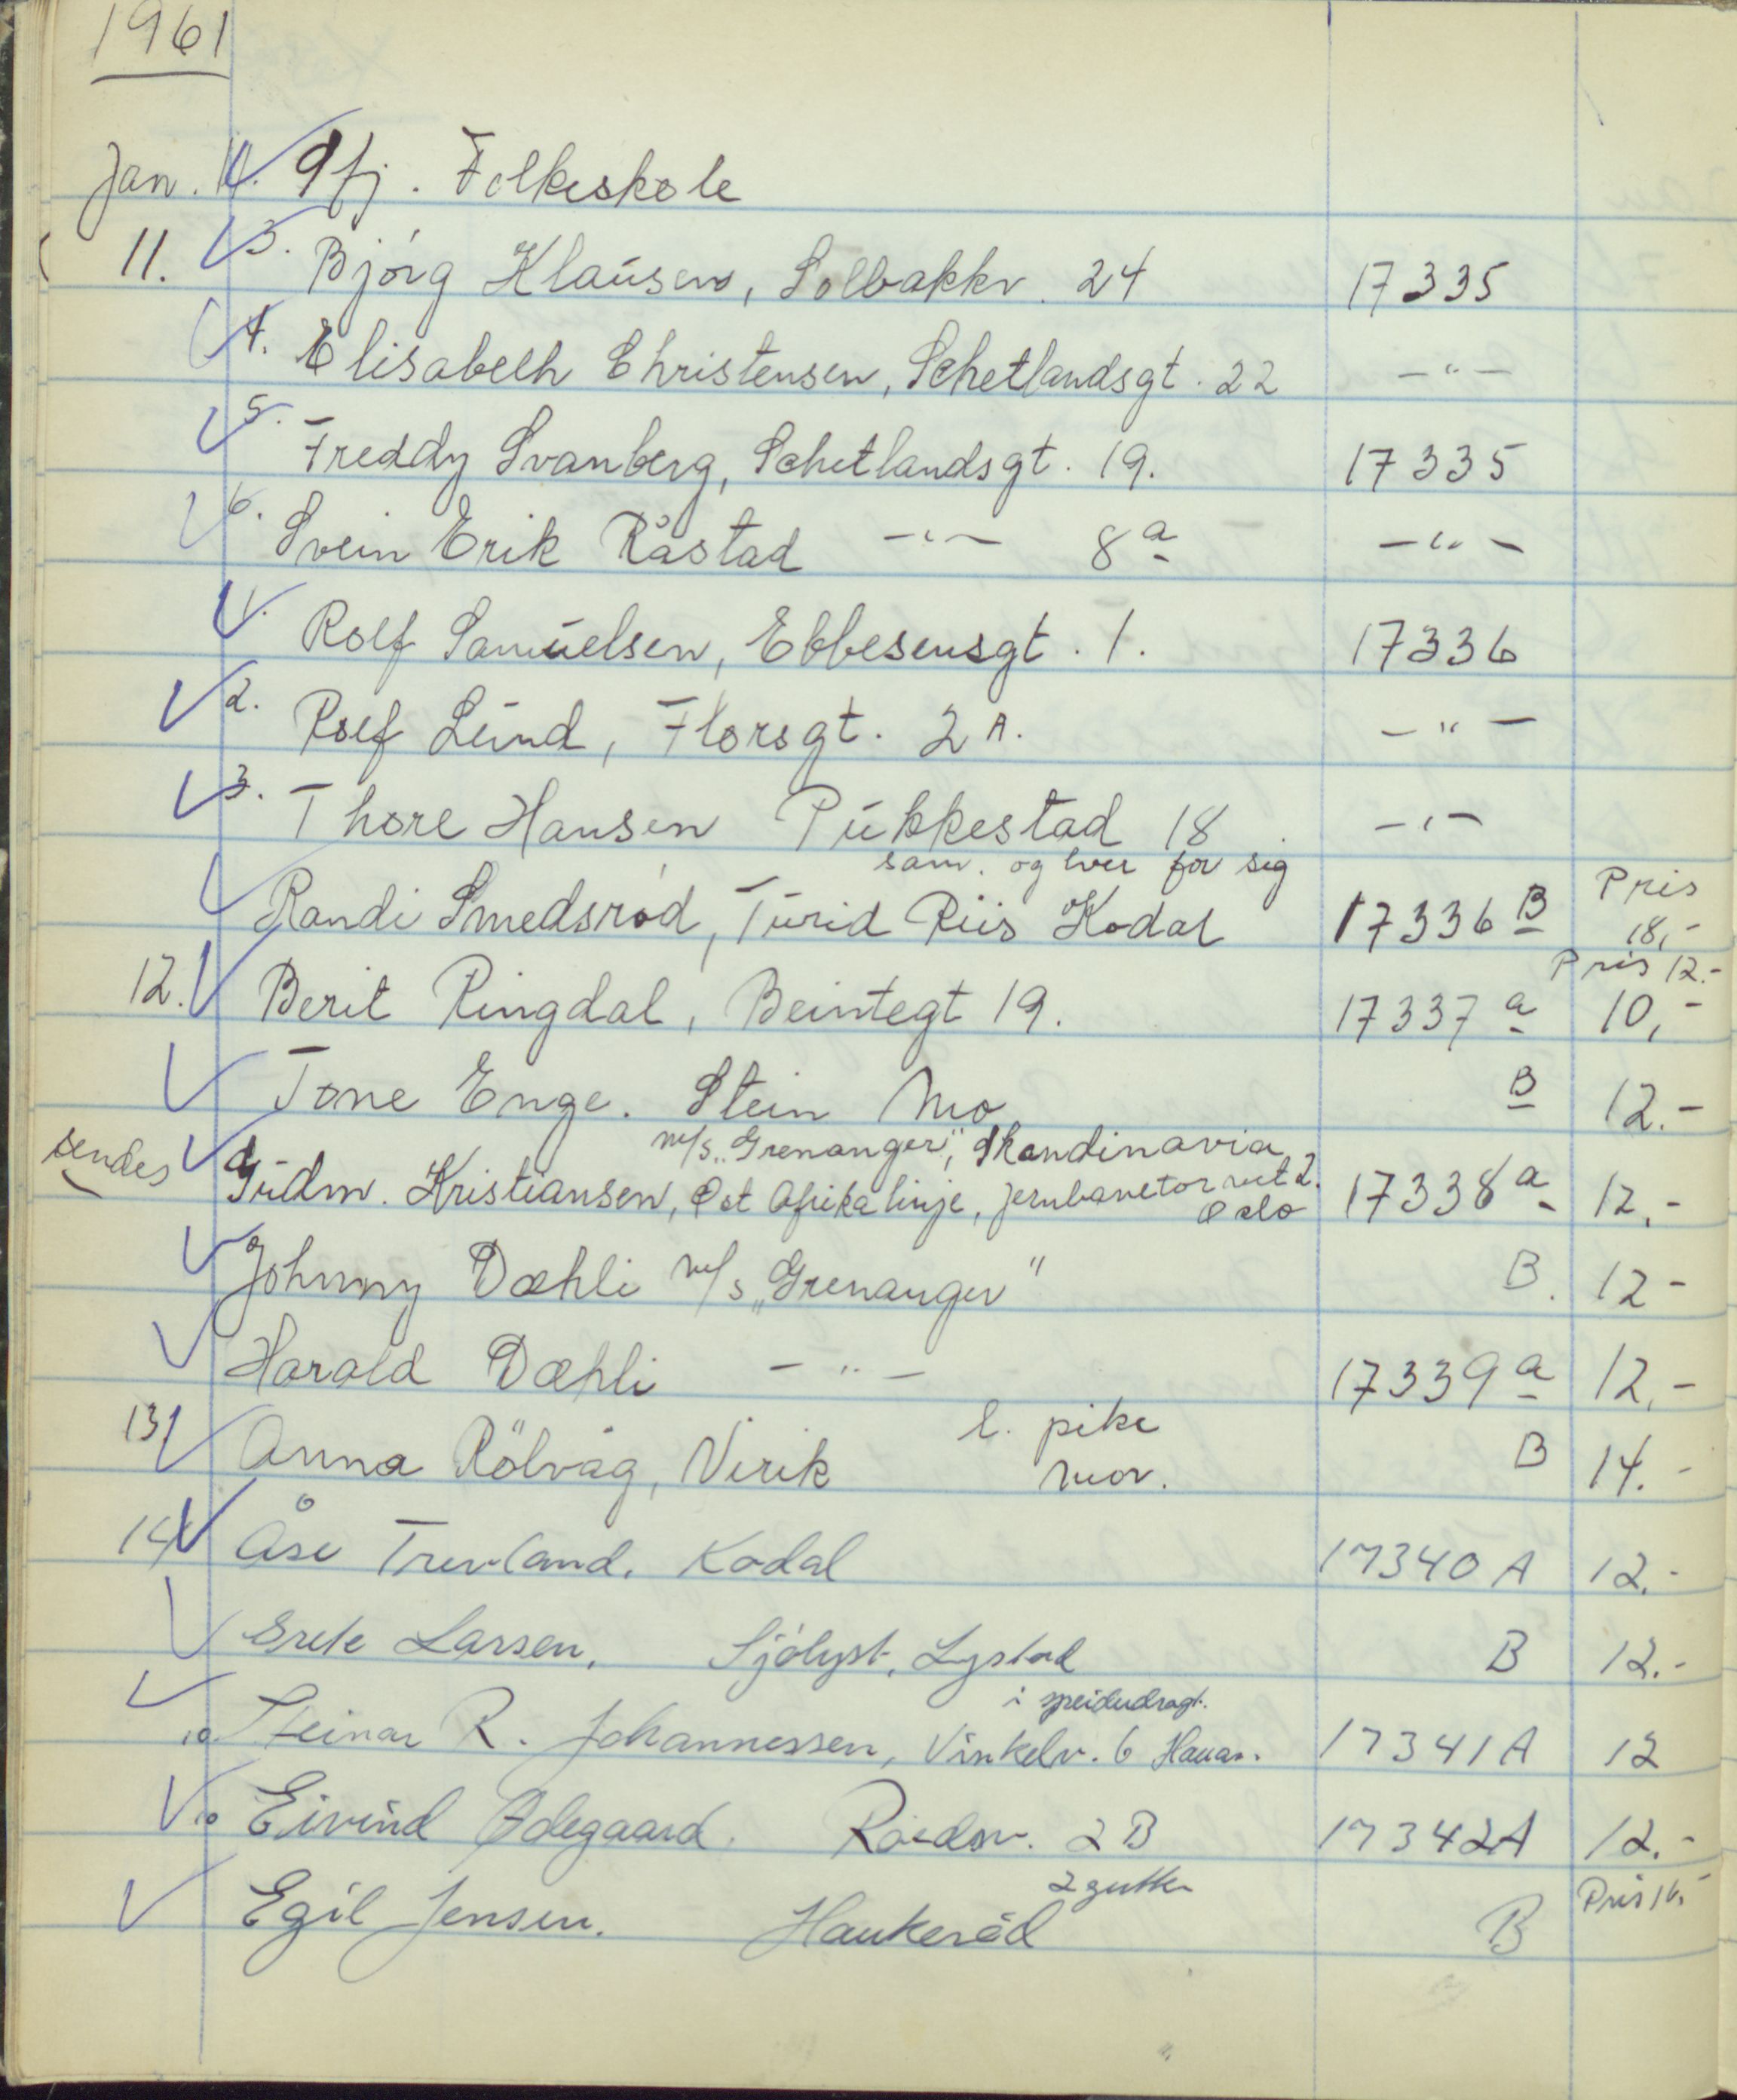 1961
Jan. 11. 9fj. Folkeskole
11. 3. Bjørg Klausen, Solbakkv. 24 17335
4. Elisabeth Christensen, Schetlandsgt. 22 -"-
5. Freddy Svanberg, Schetlandsgt. 19. 17335
6. Svein Erik Råstad -"- 8a -"-
1. Rolf Samuelsen, Ebbesensgt. 1. 17336
2. Rolf Lund, Florsgt. 2A. -"-
3. Thore Hansen Pukkestad 18 -"-
sam. og hver for sig
Randi Smedsrød, Turid Riis Kodal 17336 B Pris 18,-
12. Berit Ringdal, Beintegt 19. 17337 a Pris 12.- 10,-
Tone Enge. Stein Mo B 12.-
m/s. "Grenanger", Skandinavia
sendes Gudm. Kristiansen, Øst Afrika linje, Jernbanetorvet 2. Oslo 17338 a 12,-
Johnny Dæhli m/s "Grenanger" B. 12-
Harald Dæhli -"- 17339 a 12,-
13. Anna Rölvåg, Virik l. pike mor. B 14.-
14. Åse Trevland. Kodal 17340 A 12.-
Grete Larsen. Sjölyst, Lystad B 12.-
i speiderdragt.
Steinar R. Johannessen, Vinkelv. 6 Hauan. 17341A 12
Eivind Ødegaard. 2B 17342A 12.-
2 gutter
Egil Jensen. Haukeröd B Pris 16,-